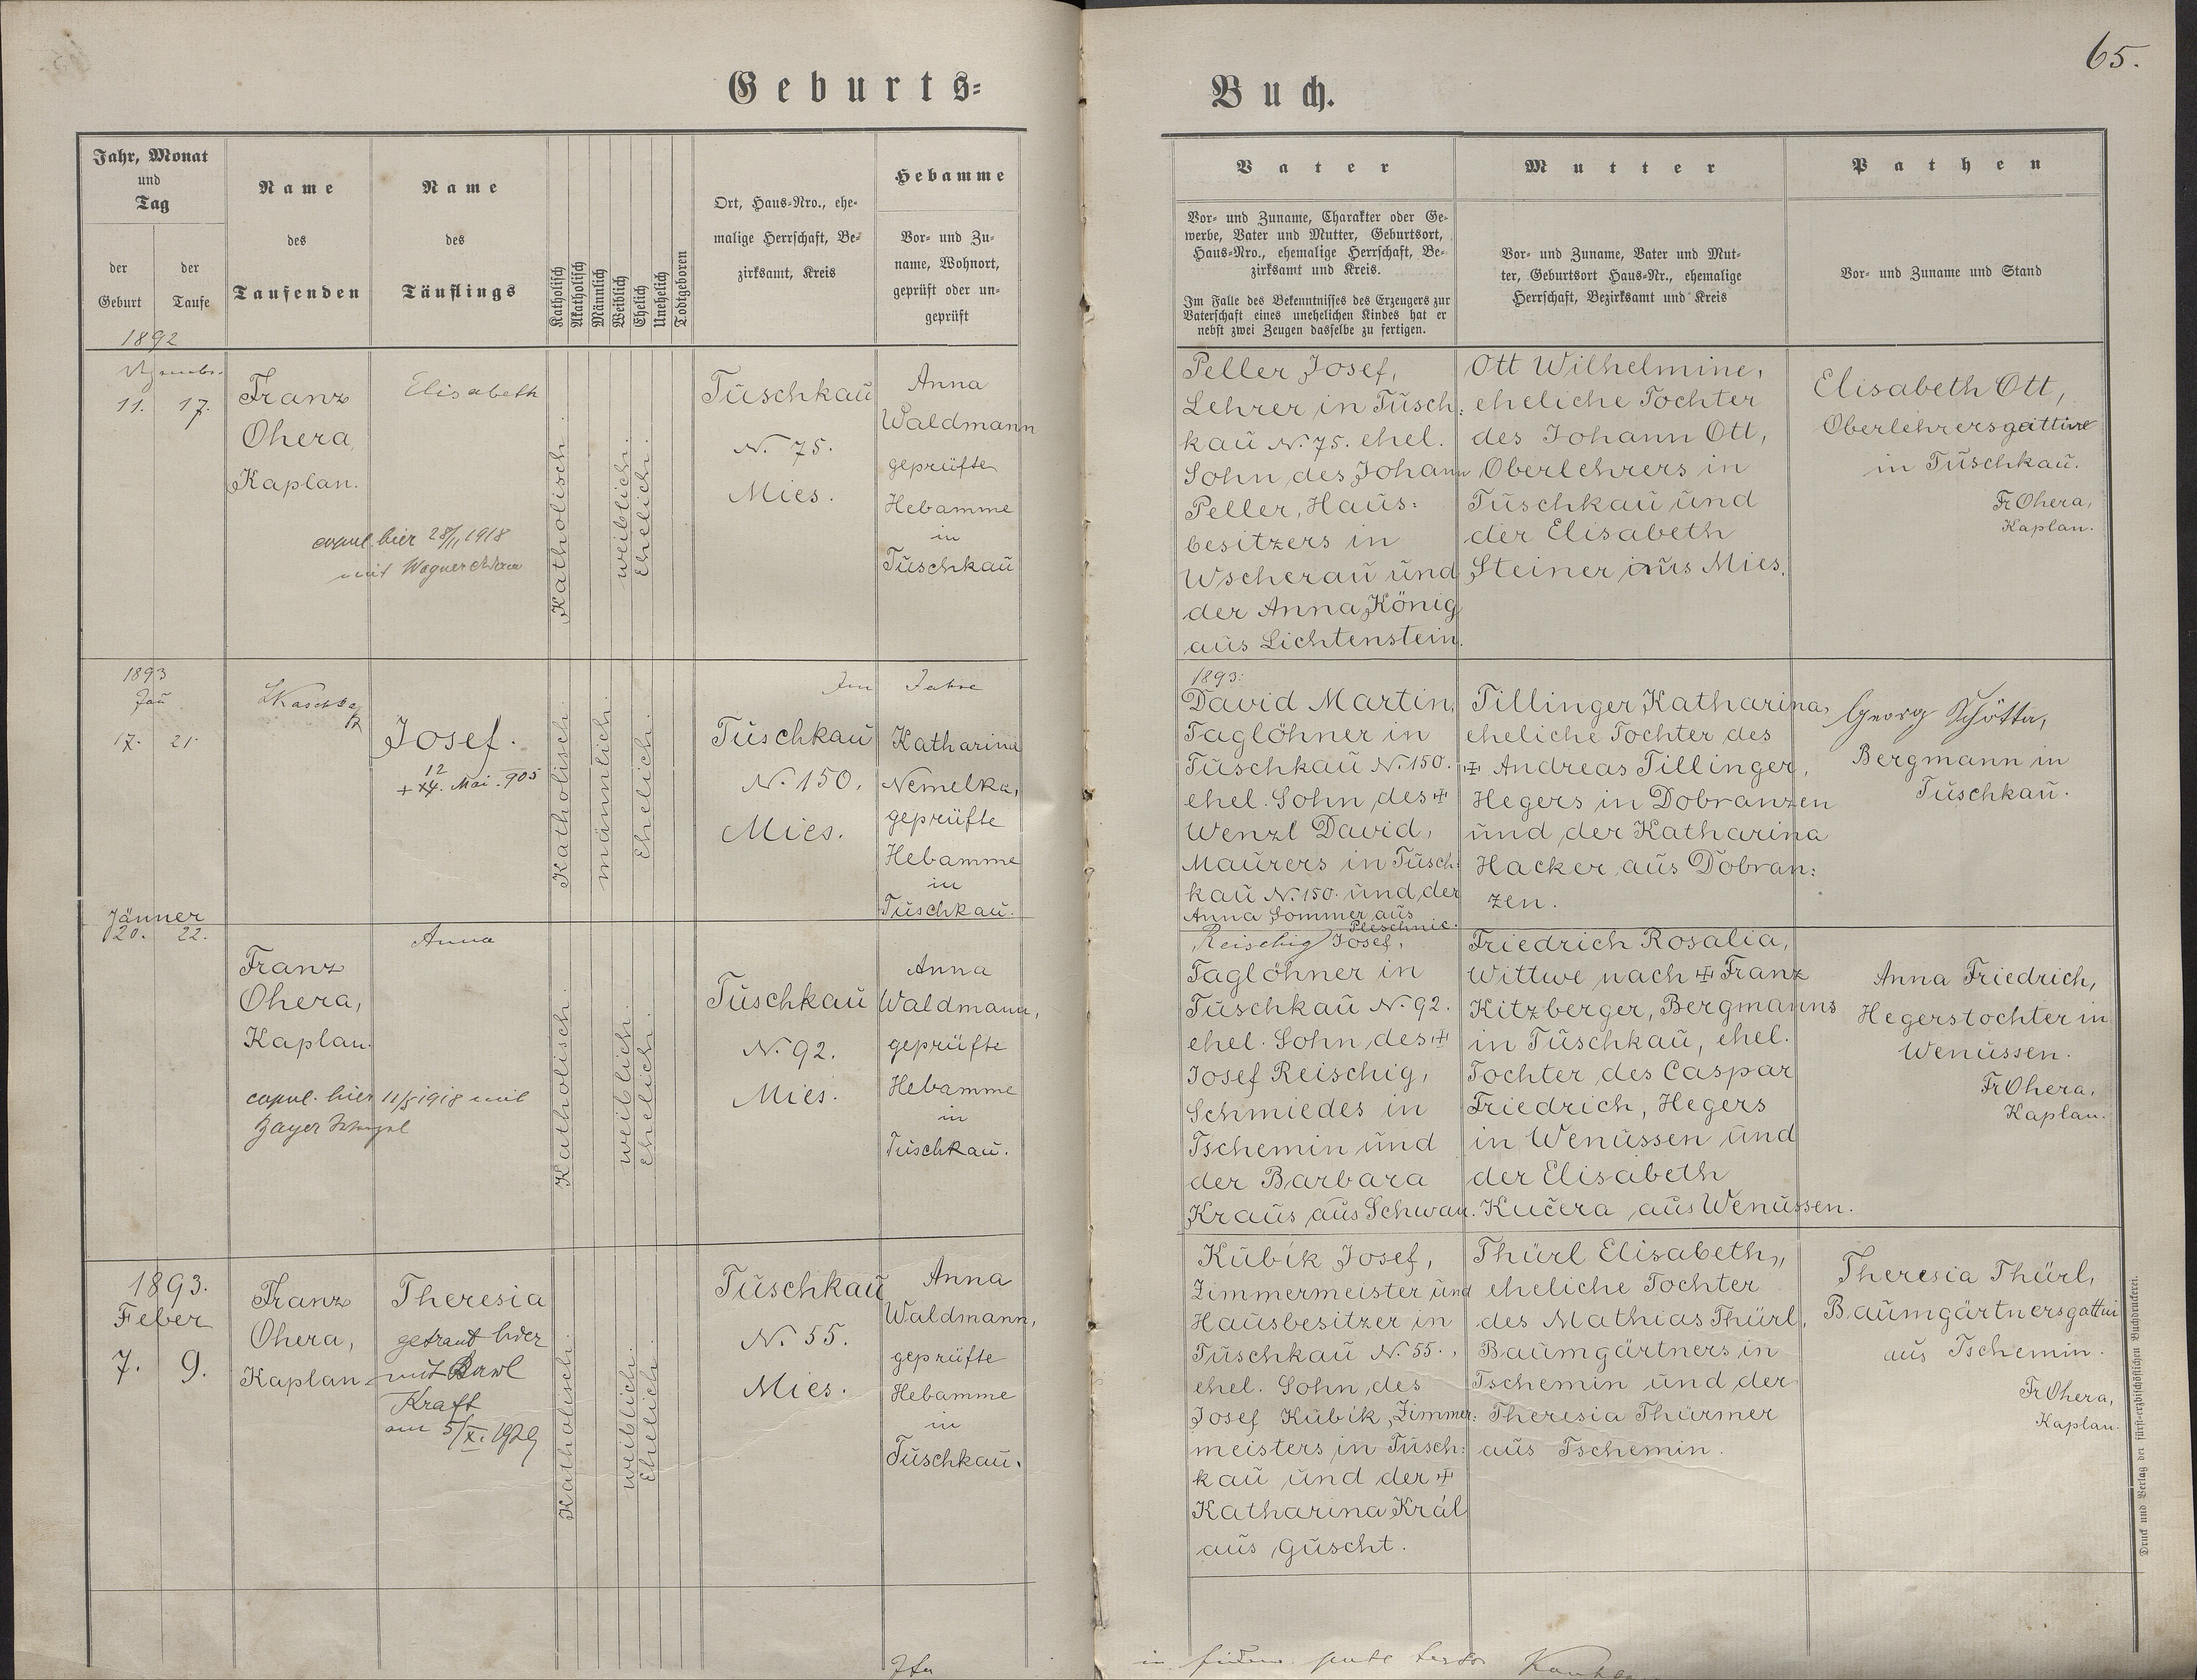 65.
Geburts=
Buch.
Jahr, Monat
und
Tag
der
Geburt
der
Taufe
Name
des
Taufenden
Name
des
Täuflings
Katholisch
Akatholisch
Männlich
Weiblich
Ehelich
Unehelich
Todtgeboren
Ort, Haus-Nro., ehe-
malige Herrschaft, Be-
zirksamt, Kreis
Hebamme
Vor- und Zu-
name, Wohnort,
geprüft oder un-
geprüft
Vater
Vor- und Zuname, Charakter oder Ge-
werbe, Vater und Mutter, Geburtsort,
Haus-Nro., ehemalige Herrschaft, Be-
zirksamt und Kreis.
Im Falle des Bekenntnisses des Erzeugers zur
Vaterschaft eines unehelichen Kindes hat er
nebst zwei Zeugen dasselbe zu fertigen.
Mutter
Vor- und Zuname, Vater und Mut-
ter, Geburtsort Haus-Nr., ehemalige
Herrschaft, Bezirksamt und Kreis
Pathen
Vor- und Zuname und Stand
1892
11. 17.
Franz
Ohera,
Kaplan.
Elisabeth
copul. hier 28/1 1918
mit Wagner
Katholisch.
weiblich.
Ehelich.
Tuschkaŭ
N. 75.
Mies.
Anna
Waldmann
geprüfte
Hebamme
in
Tŭschkaŭ
Peller Josef,
Lehrer in Tŭsch:
kaŭ N. 75. ehel.
Sohn des Johann
Peller, Haŭs:
besitzers in
Wscheraŭ ŭnd
der Anna König
aŭs Lichtenstein.
Ott Wilhelmine,
eheliche Tochter
des Johann Ott,
Oberlehrers in
Tŭschkaŭ ŭnd
der Elisabeth
Steiner aŭs Mies.
Elisabeth Ott,
Oberlehrersgattin
in Tŭschkaŭ.
Fr Ohera,
Kaplan.
1893
Jan
17. 21.
Josef.
12
+ 14. Mai. 905
Katholisch.
männlich.
Ehelich.
Im Jahre
Tŭschkaŭ
N. 150.
Mies.
Katharina
Nemelka,
geprüfte
Hebamme
in
Tŭschkaŭ.
1893:
David Martin,
Taglöhner in
Tŭschkaŭ N. 150.
ehel. Sohn des ✠
Wenzl David,
Maŭrers in Tŭsch:
kaŭ N. 150. ŭnd der
Anna Sommer aŭs
Pleschnic.
Tillinger Katharina,
eheliche Tochter des
✠ Andreas Tillinger,
Hegers in Dobranzen
ŭnd der Katharina
Hacker aŭs Dobran:
zen.
Georg Schötta,
Bergmann in
Tŭschkaŭ.
Jänner
20. 22.
Franz
Ohera,
Kaplan.
Anna
copul. hier 11/5 1918 mit
Katholisch.
weiblich.
Ehelich.
Tŭschkaŭ
N. 92.
Mies.
Anna
Waldmann,
geprüfte
Hebamme
in
Tŭschkaŭ.
Reischig Josef,
Taglöhner in
Tŭschkaŭ N. 92.
ehel. Sohn des ✠
Josef Reischig,
Schmiedes in
Tschemin ŭnd
der Barbara
Kraŭs aŭs Schwan.
Friedrich Rosalia,
Wittwe nach ✠ Franz
Kitzberger, Bergmanns
in Tŭschkaŭ, ehel.
Tochter des Caspar
Friedrich, Hegers
in Wenŭssen ŭnd
der Elisabeth
Kučera aŭs Wenŭssen.
Anna Friedrich,
Hegerstochter in
Wenŭssen.
Fr Ohera,
Kaplan.
1893.
Feber
7. 9.
Franz
Ohera,
Kaplan
Theresia
getraut hier
mit Karl
Kraft
am 5/XI. 1929
Katholisch.
weiblich.
Ehelich.
Tŭschkaŭ
N. 55.
Mies.
Anna
Waldmann,
geprüfte
Hebamme
in
Tŭschkaŭ.
Kŭbik Josef,
Zimmermeister ŭnd
Haŭsbesitzer in
Tŭschkaŭ N. 55.,
ehel. Sohn des
Josef Kŭbik, Zimmer:
meisters in Tŭsch:
kaŭ ŭnd der ✠
Katharina Král
aŭs Guscht.
Thürl Elisabeth,
eheliche Tochter
des Mathias Thürl,
Baŭmgärtners in
Tschemin ŭnd der
Theresia Thürmer
aŭs Tschemin.
Theresia Thürl,
Baŭmgärtnersgattin
aŭs Tschemin.
Fr Ohera,
Kaplan.
Druck und Verlag der fürst-erzbischöflichen Buchdruckerei.